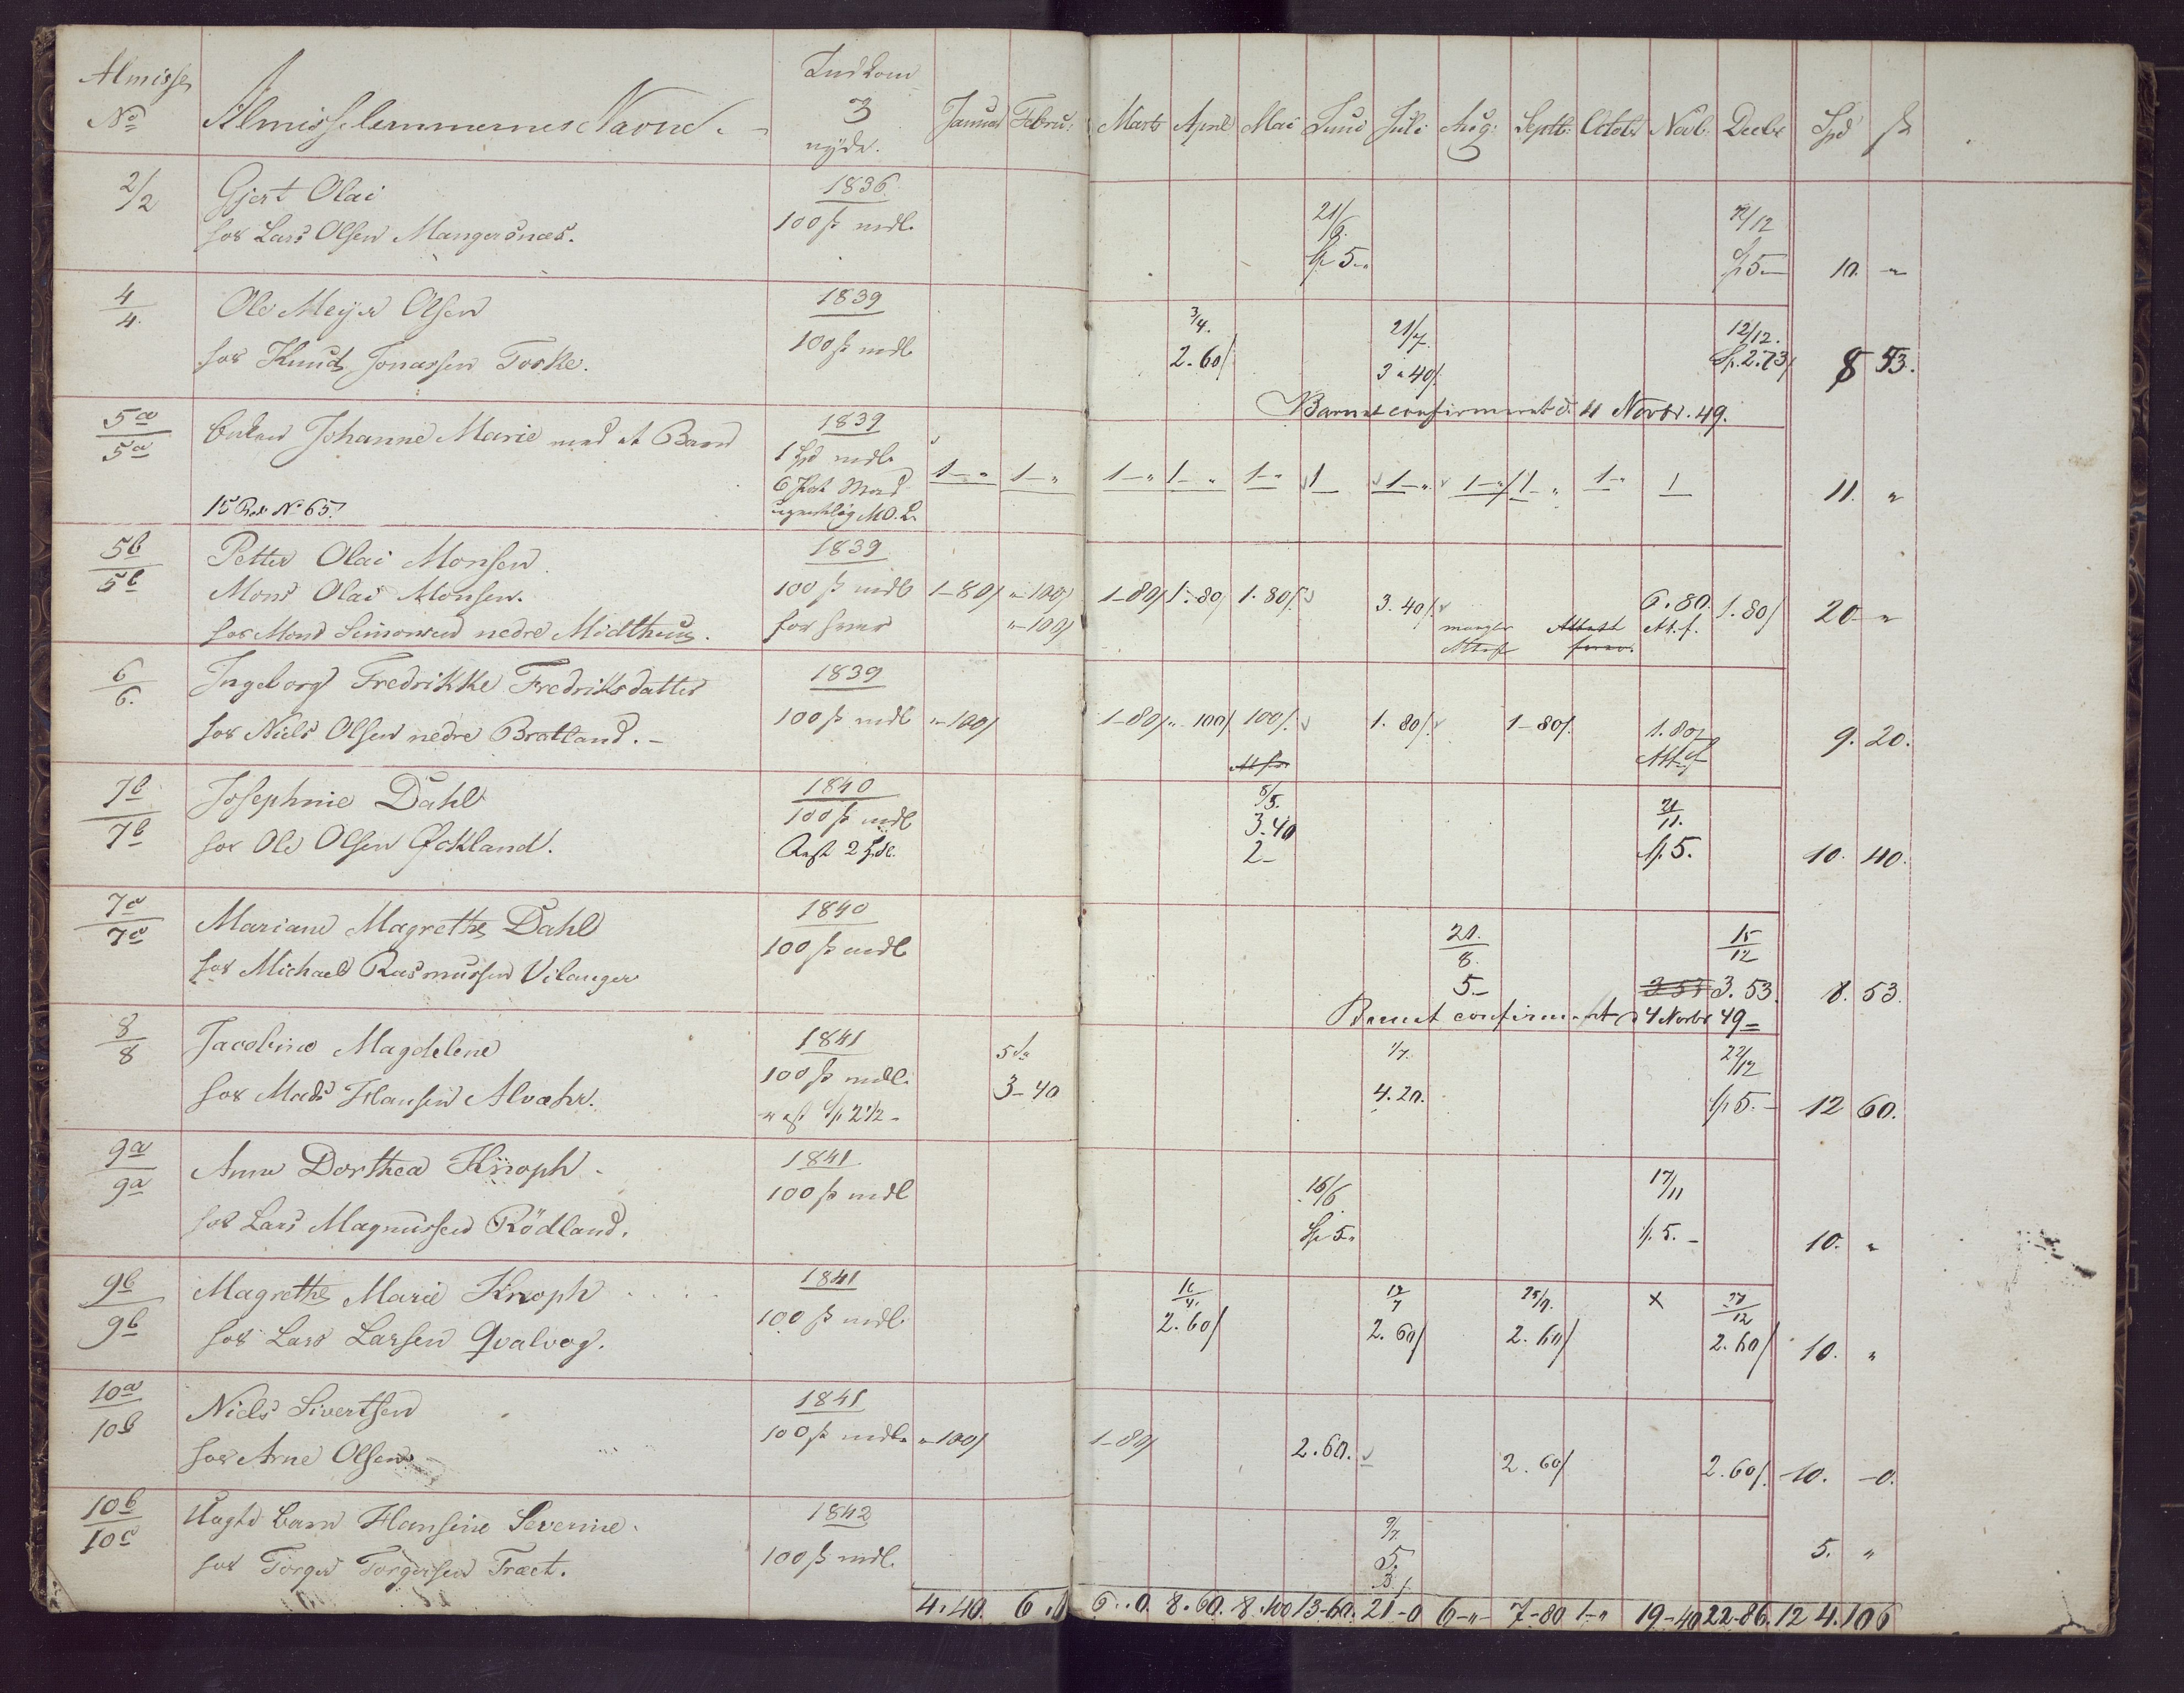 Almisse Almisselemmernes Navne. Indkom Januar Febru: Marts April Mai Juni Juli Aug: Septb: Octobr Novb. Decbr Spd ß
No 3
nyde.
2/2 Gjert Olai 1836 21/6 12/12
hos Lars Olsen Mangersnæs. 100 ß mdl. Sp 5-" Sp 5- 10. -"
4/4. Ole Meyer Olsen 1839 3/4. 21/7. 12/12.
hos Knud Jonassen Toske. 100 ß mdl. 2.60/ 3"40/. Sp. 2.73/ 8 53.
Barnet confirmeret d. 4 Novbr. 49.
5a/5a Enken Johanne Marie med et Barn 1839
1 Spd mdl. 1-" 1-" 1-" 1-" 1-" 1 1-" 1-" 1-" 1-" 1 11. "
15 No 65. 6 M.O.L.
5b/5b Petter Olai Monsen. 1839
Mons Olai Monsen. 100 ß mdl 1-80/ "-100/ 1-80/ 1.80/ 1.80/. 3.40/. 6.80. 1.80/ 20- "
hos Mons Simonsen nedre Midthuus. for hver "-100/ mangler Attest Attest Att. f.
6/6. Ingeborg Fredrikke Fredriksdatter 1839
hos Niels Olsen nedre Bratland. - 100 ß mdl "-100/ 1-80/ "-100/ 100/. 1.80/. 1-80/. 1.80/ 9. 20.
Att. f
7b/7b Josephine Dahl 1840 5/5. 21/11.
hos Ole Olsen Gekland. 100 ß mdl 3.40 Sp. 5. 10. 40.
Rest 2 Spd. 2-
7c/7c Mariane Magrethe Dahl 1840 21./8. 15/12
hos Michael Rasmussen Vilanger 100 ß mdl 5.- 3 53 3.53. 8. 53.
Barnet confirmeret d 4 Novbr 49=
8/8 Jacobine Magdelene 1841 1/7. 22/12
hos Mads Hansen Alvahr. 100 ß mdl. 3-40 4.20. Sp 5.- 12 60.
rest Sp 2 1/2-
9a/9a Anne Dorthea Knoph. 1841 16/6 17/11
hos Lars Magnussen Rödland. 100 ß mdl Sp 5" Sp. 5.- 10. "
9b/9b Magrethe Marie Knoph 1841 12/7 25/9. x 27/12
hos Lars Larsen Qvalvog. 100 ß mdl. 2.60/ 2.60/ 2.60/ 2.60/ 10. "
10a/10b Niels Sivertsen 1841
hos Arne Olsen 100 ß mdl. "-100/ 1-80/ 2.60. 2.60/ 2.60/. 10. -0.
10b/10c Uægte Barn Hansine Severine. 1842 9/7.
hos Torger Torgersen Træet. 100 ß mdl. 5. 5. "
4.40. 6." 6..0. 8.60. 8.100 13-60. 21-0 6-"- 7-80 1-" 19-40 22-86. 124.106